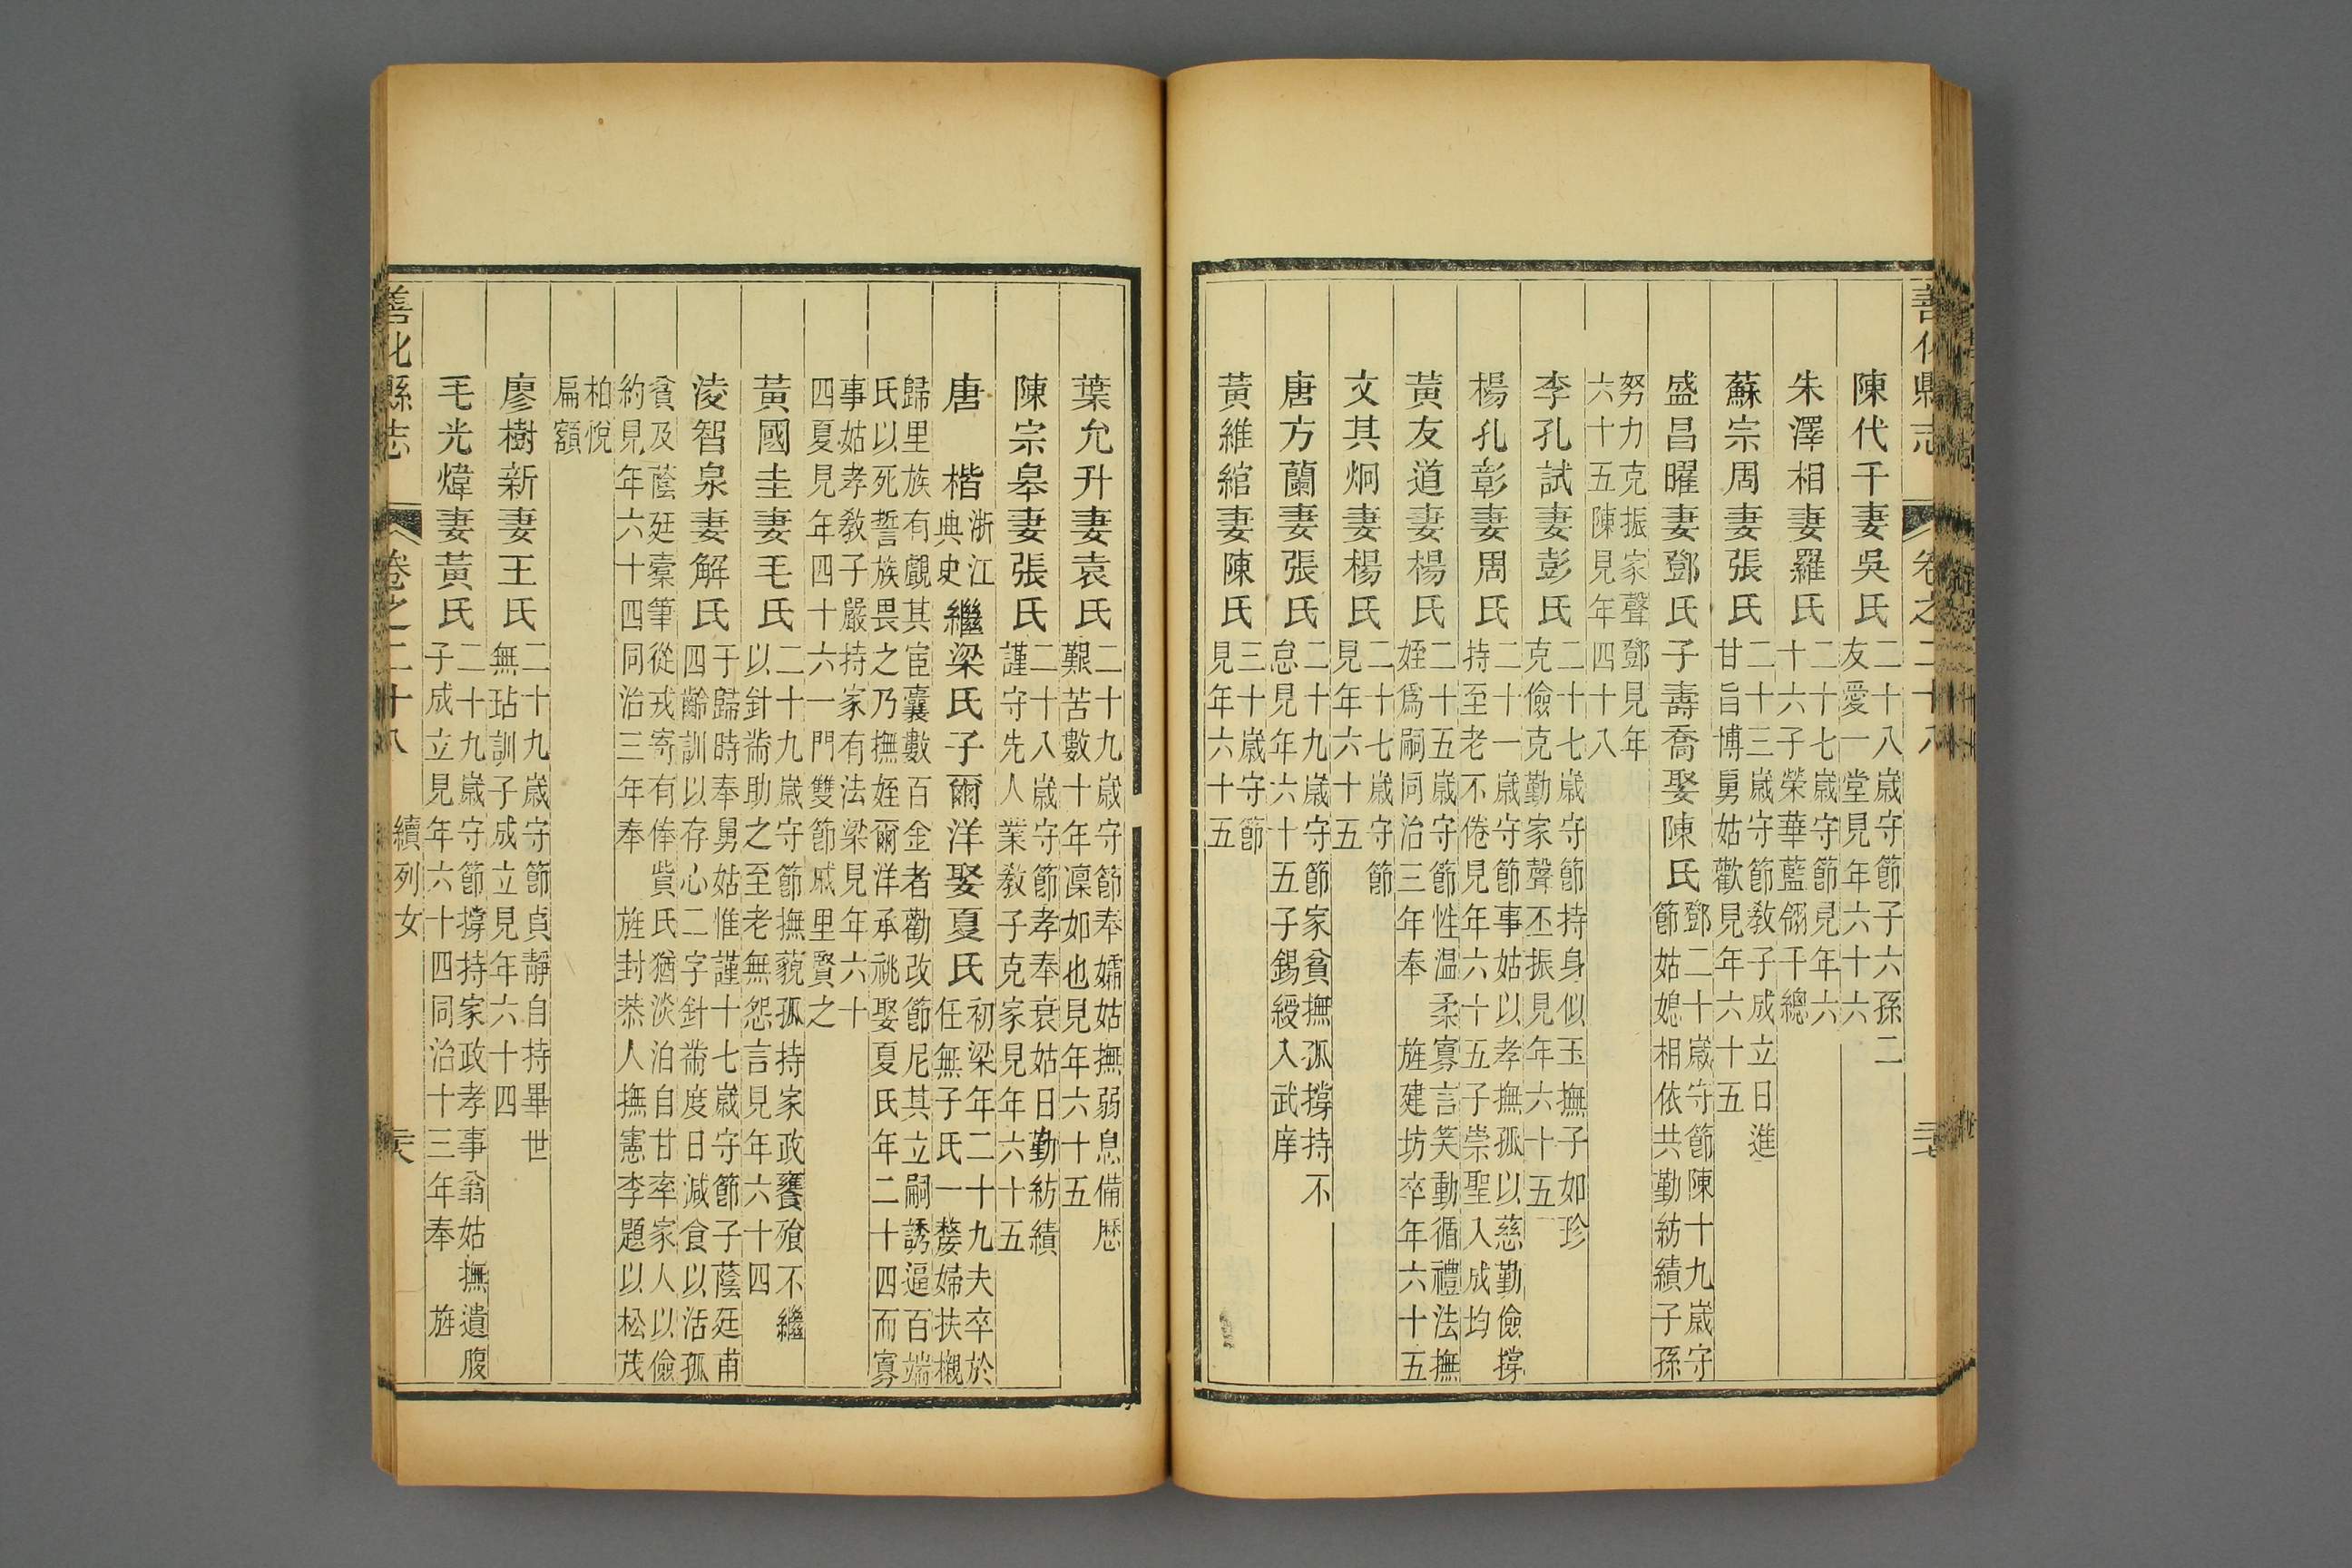 善化縣志 卷之二十八
陳代千妻吳氏 二十八歲守節子六孫二
友愛一堂見年六十六
朱澤相妻羅氏 二十七歲守節見年六
十六子榮華藍翎千總
蘇宗周妻張氏 二十三歲守節教子成立日進
甘旨博舅姑歡見年六十五
盛昌曜妻鄧氏子壽喬娶陳氏 鄧二十歲守節陳十九歲守
節姑媳相依共勤紡績子孫
努力克振家聲鄧見年
六十五陳見年四十八
李孔試妻彭氏 二十七歲守節持身似玉撫子如珍
克儉克勤家聲丕振見年六十五
楊孔彰妻周氏 二十一歲守節事姑以孝撫孤以慈勤儉撐
持至老不倦見年六十五子崇聖入成均
黃友道妻楊氏 二十五歲守節性温柔寡言笑動循禮法撫
姪爲嗣同治三年奉 旌建坊卒年六十五
文其炯妻楊氏 二十七歲守節
見年六十五
唐方蘭妻張氏 二十九歲守節家貧撫孤撐持不
怠見年六十五子錫綬入武庠
黃維綰妻陳氏 三十歲守節
見年六十五
葉允升妻袁氏 二十九歲守節奉孀姑撫弱息備歷
艱苦數十年凜如也見年六十五
陳宗皋妻張氏 二十八歲守節孝奉衰姑日勤紡績
謹守先人業教子克家見年六十五
唐 楷 浙江
典史 繼梁氏子爾洋娶夏氏 初梁年二十九夫卒於
任無子氏一嫠婦扶櫬
歸里族有覬其宦囊數百金者勸改節尼其立嗣誘逼百端
氏以死誓族畏之乃撫姪爾洋承祧娶夏氏年二十四而寡
事姑孝教子嚴持家有法梁見年六十
四夏見年四十六一門雙節戚里賢之
黃國圭妻毛氏 二十九歲守節撫藐孤持家政饔飱不繼
以針黹助之至老無怨言見年六十四
淩智泉妻解氏 于歸時奉舅姑惟謹十七歲守節子蔭廷甫
四齡訓以存心二字針黹度日減食以活孤
貧及蔭廷橐筆從戎寄有俸貲氏猶淡泊自甘率家人以儉
約見年六十四同治三年奉 旌封恭人撫憲李題以松茂
柏悅
扁額
廖樹新妻王氏 二十九歲守節貞靜自持畢世
無玷訓子成立見年六十四
毛光煒妻黃氏 二十九歲守節撐持家政孝事翁姑撫遺腹
子成立見年六十四同治十三年奉 旌
善化縣志 卷之二十八 續列女